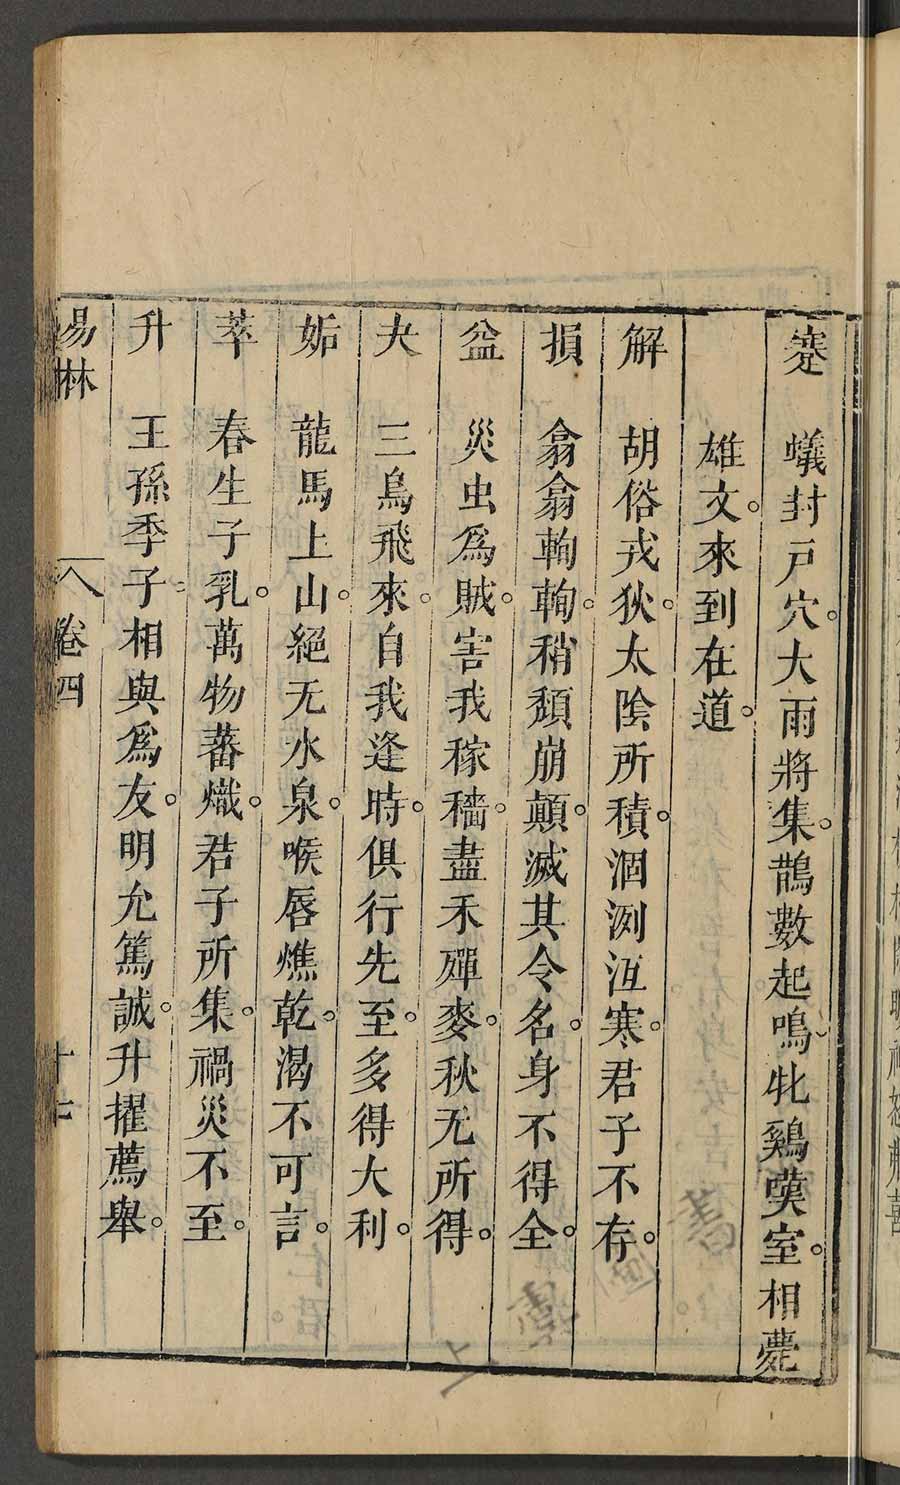 蹇 蟻封戸穴。大雨將集。鵲數起鳴、牝鷄嘆室。相薨
雄父。來到在道。
解 胡俗戎狄。太陰所積。涸冽沍寒。君子不存。
損 翕翕輷輷。稍頹崩顛。滅其令名。身不得全。
益 災虫爲賊。害我稼穡。盡禾殫麥。秋无所得。
夬 三鳥飛來。自我逢時。俱行先至。多得大利。
姤 龍馬上山。絕无水泉。喉唇燋乾。渴不可言。
萃 春生子乳。萬物蕃熾。君子所集。禍災不至。
升 王孫季子、相與爲友。明允篤誠。升擢薦舉。
易林 卷四 十七